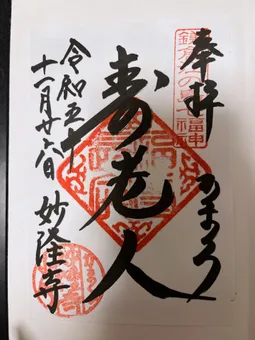 奉拝
かまくら
鎌倉江の島七福神
寿老人
令和五年
十一月廿六日
妙隆寺